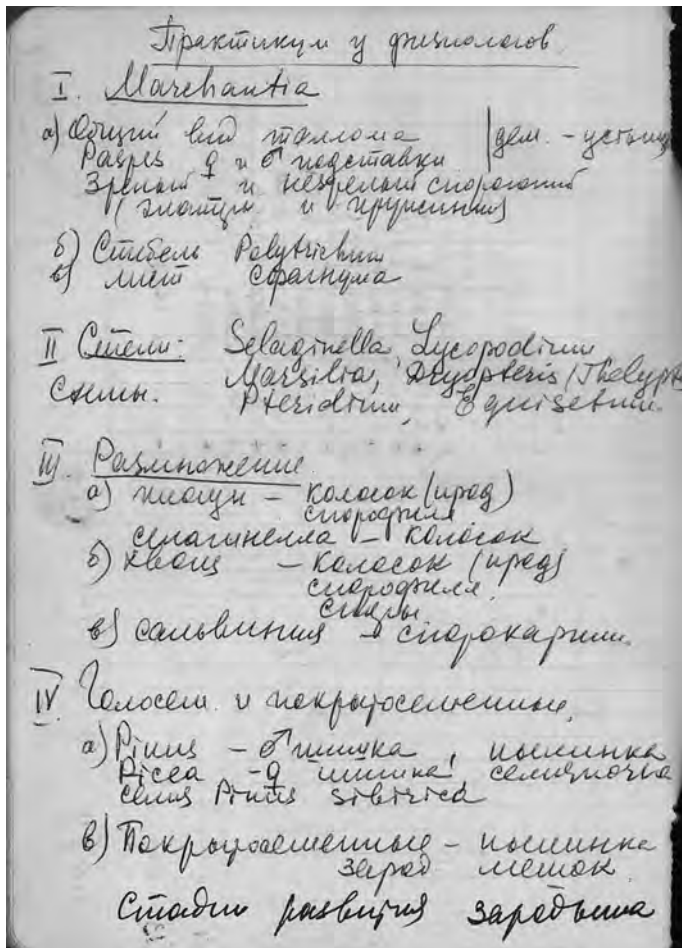 Практикум у физиологов
I. Marchantia
а) Общий вид таллома | дем. - устьиц
Разрез ♀ и ♂ подставки
Зрелый и незрелый спорогоний
( элатеры и пружинки)
б) Стебель Polytrichum
в) лист сфагнума
II Стели: Selaginella, Lycopodium
Схемы. Marsilia, Dryopteris (Thelypt
Pteridium, Equisetum.
III. Размножение
а) плаун – колосок (прод)
спорофилл
селагинелла – колосок
б) хвощ – колосок (прод)
спорофилл.
споры
в) сальвиния – спорокарпии.
IV Голосем. и покрытосеменные.
а) Pinus – ♂ шишка, пылинка
Picea - ♀ шишка, семяпочка
семя Pinus sibirica
в) Покрытосеменные – пылинка
зарод мешок.
Стадии развития зародыша